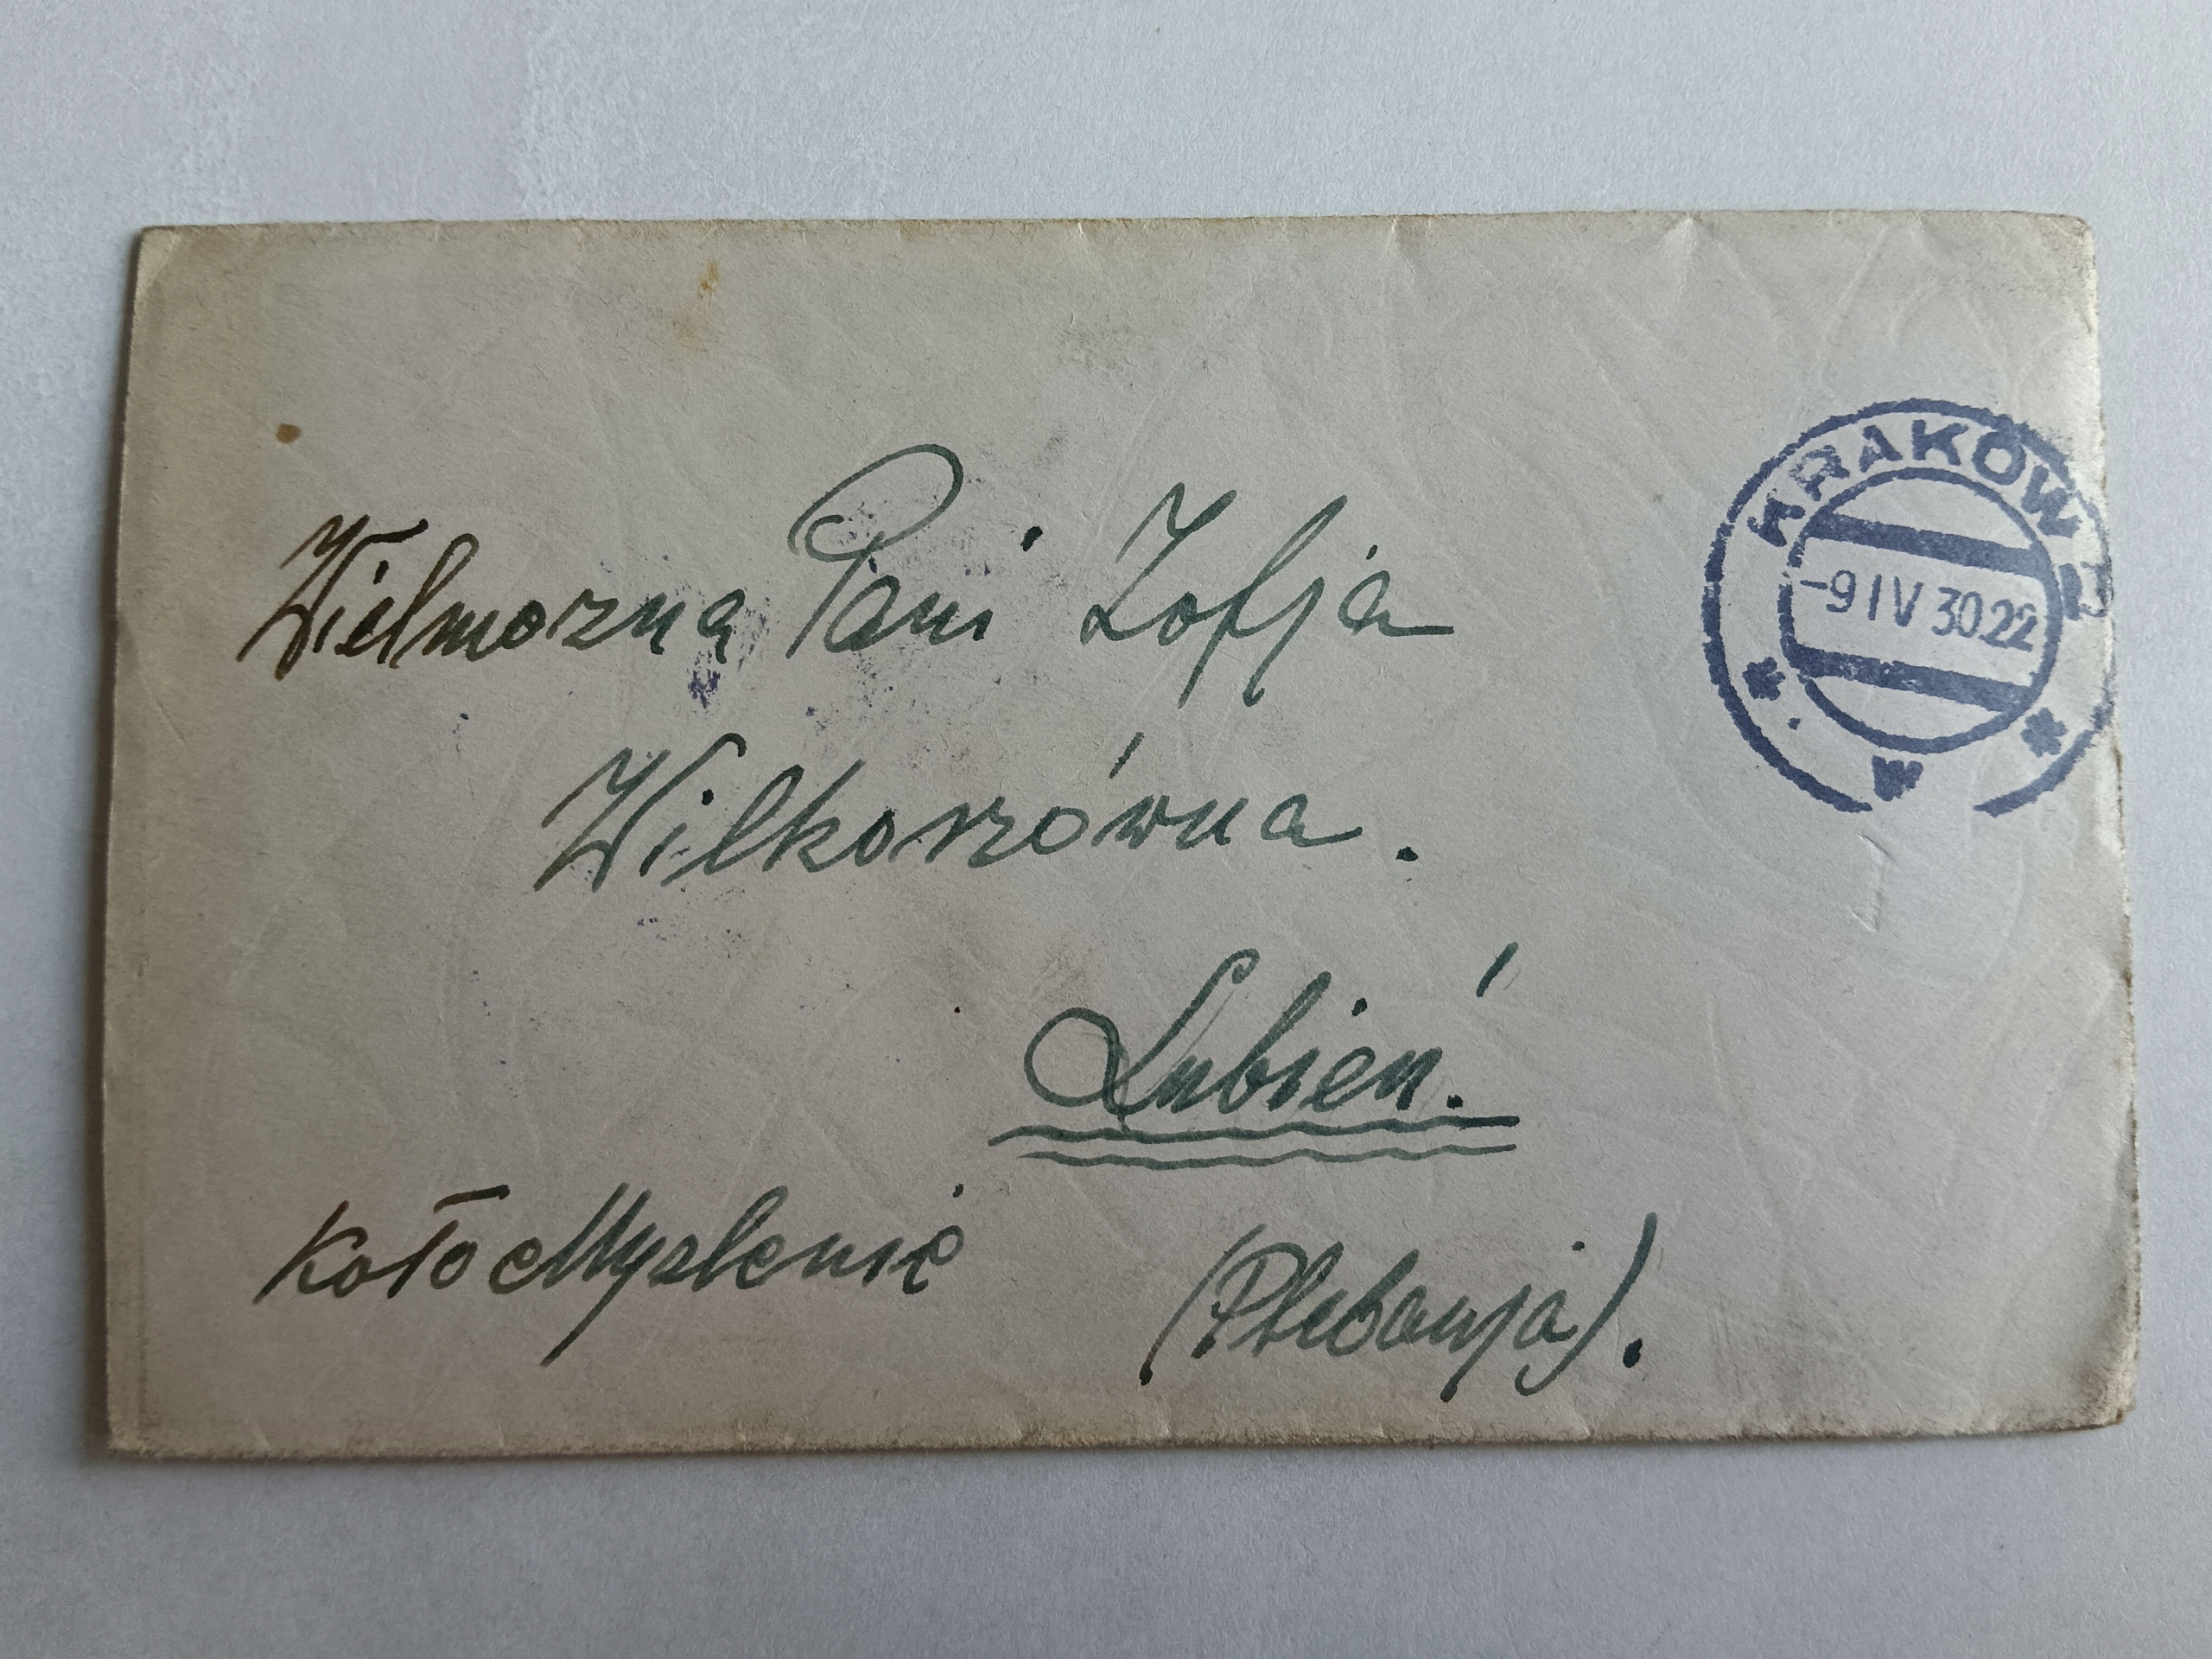 Wielmożna Pani Zofja
Wilkoszówna.
Lubień.
Koło Myślenic
(Plebanja).
KRAKÓW
-9 IV 30 22